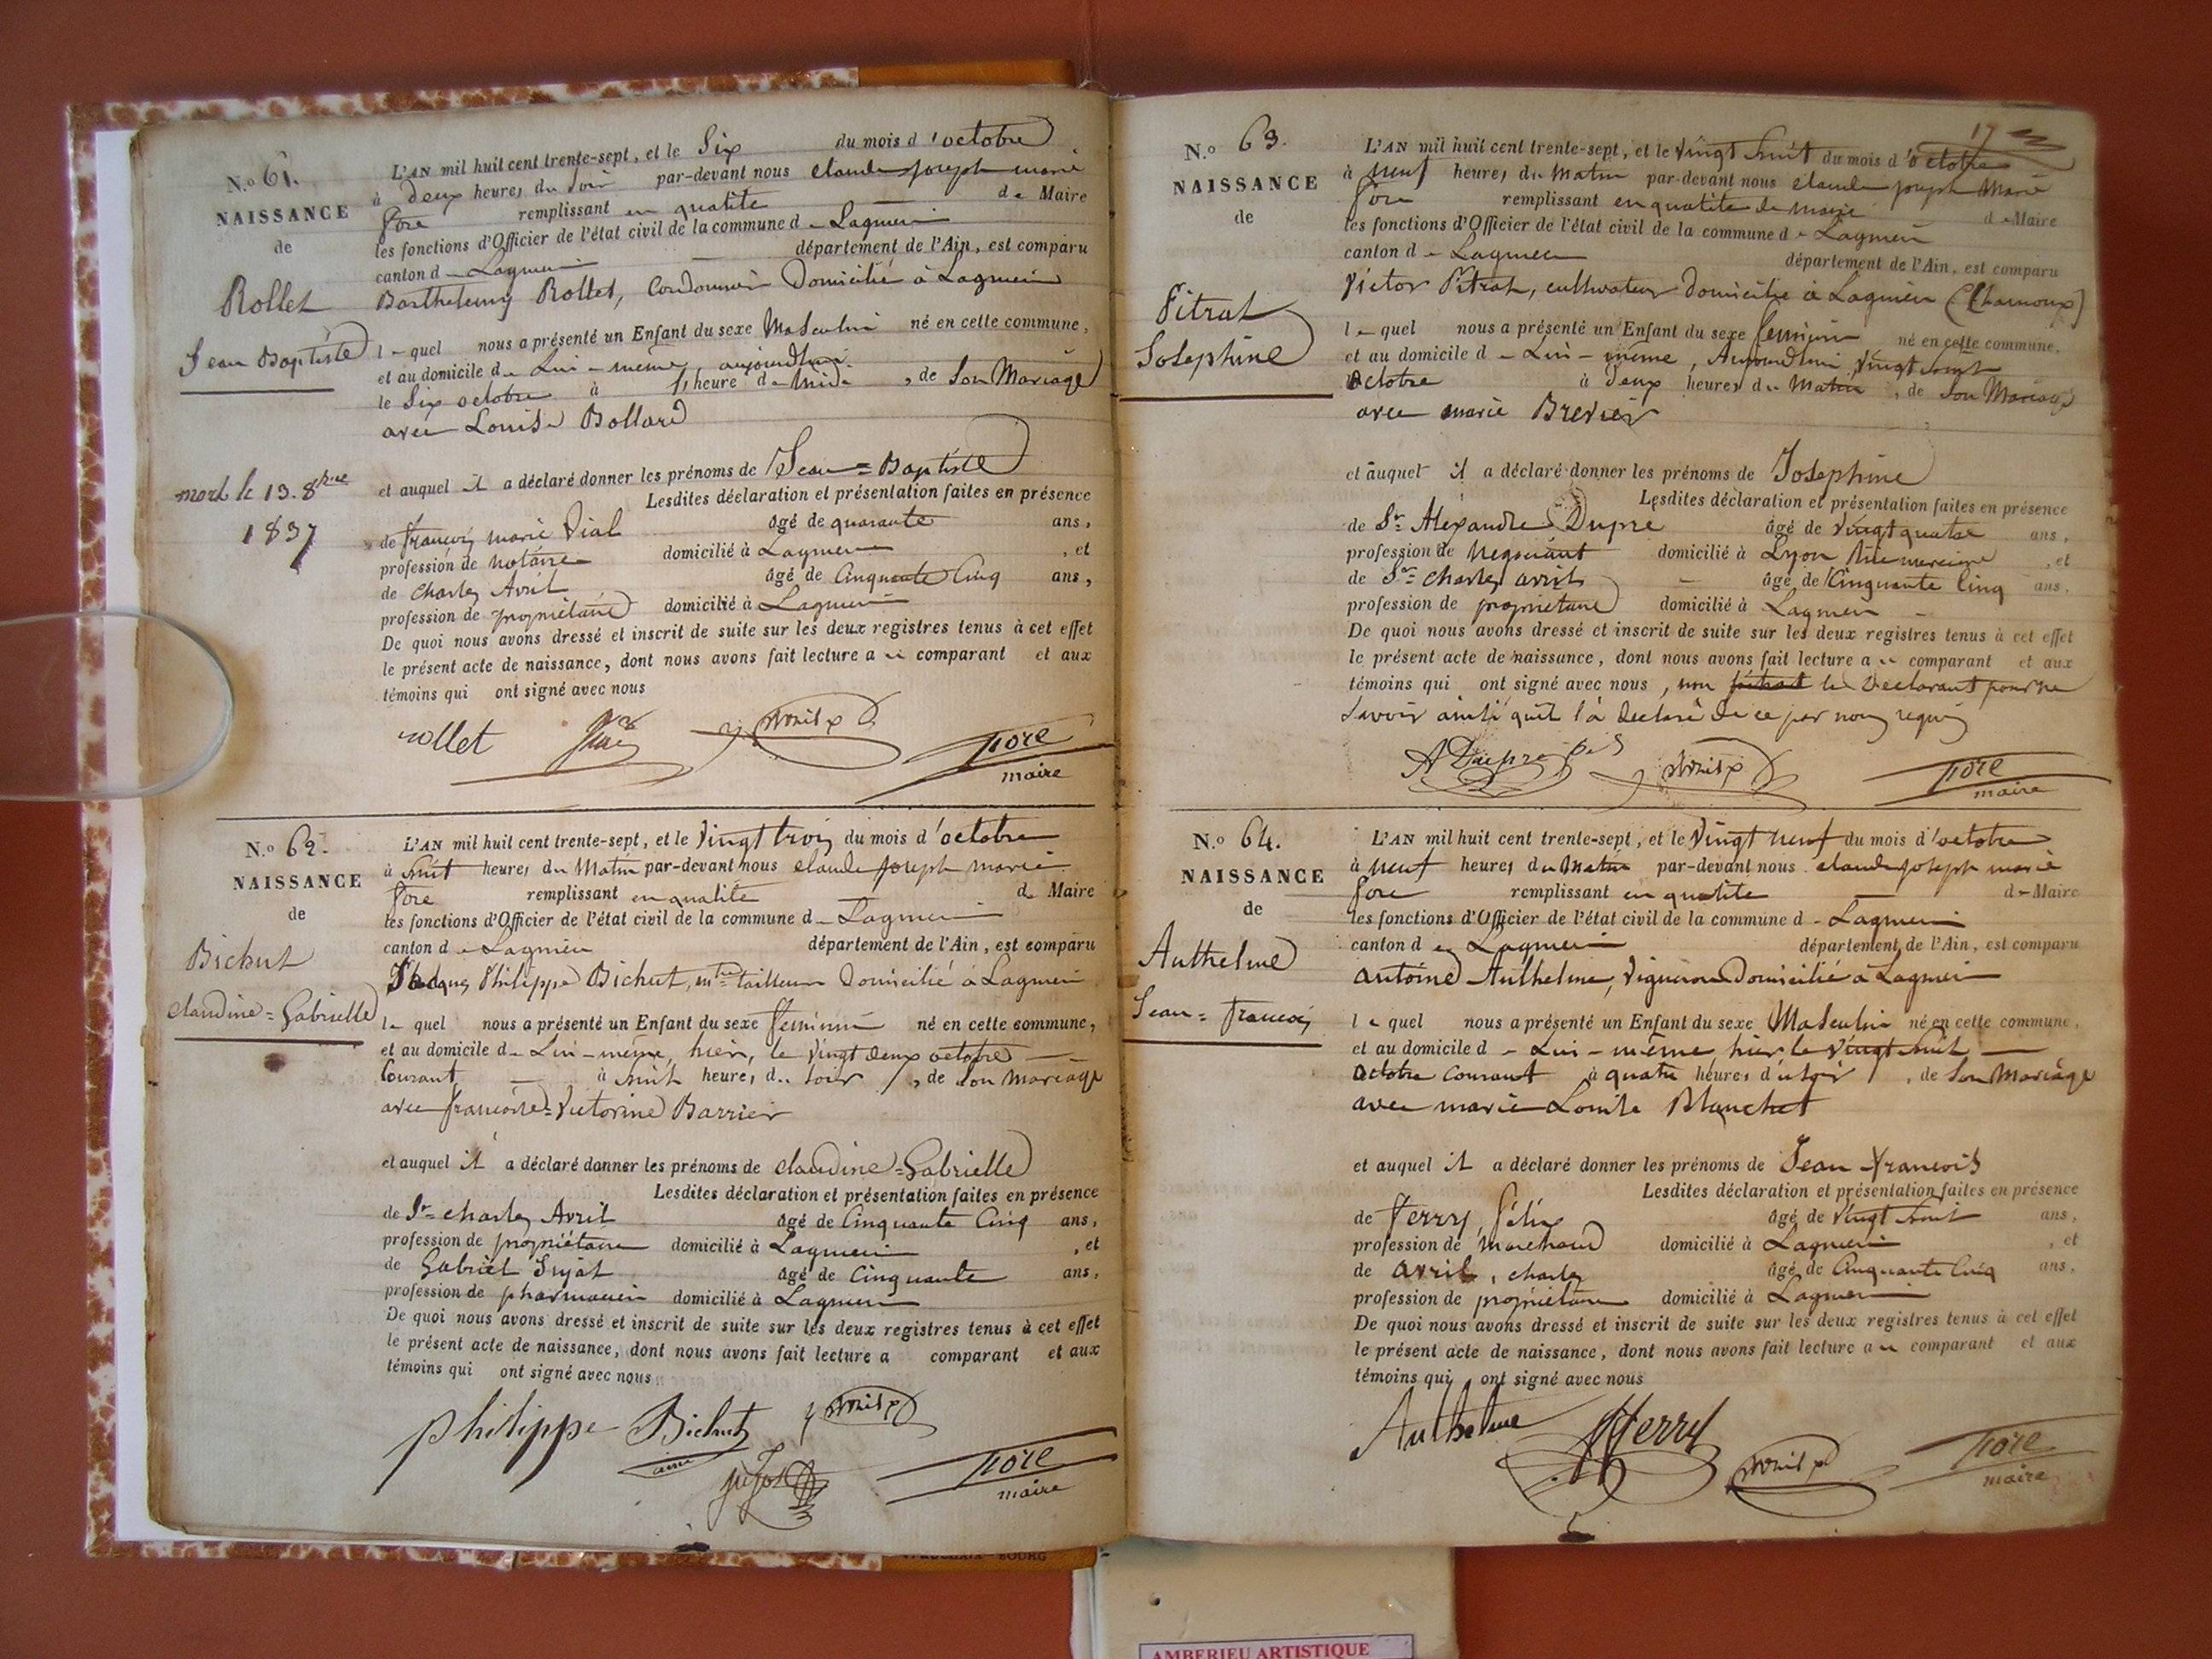 N.o 61.
NAISSANCE
de
Rollet
Jean Baptiste
mort le 13. 8bre
1837
L'AN mil huit cent trente-sept, et le Six du mois d'octobre
à deux heures du soir par-devant nous claude joseph marie
fore remplissant en qualité de Maire
les fonctions d'Officier de l'état civil de la commune de Lagnieu
canton de Lagnieu département de l'Ain, est comparu
Barthelemy Rollet, Cordonnier Domicilié à Lagnieu
le quel nous a présenté un Enfant du sexe Masculin né en cette commune,
et au domicile de Lui-même, aujourdhui
le Six octobre à heure de Midi, de Son Mariage
avec Louise Bollard
et auquel il a déclaré donner les prénoms de Jean=Baptiste
Lesdites déclaration et présentation faites en présence
de françois marie Vial âgé de quarante ans,
profession de notaire domicilié à Lagnieu, et
de Charles Avril âgé de Cinquante Cinq ans,
profession de propriétaire domicilié à Lagnieu
De quoi nous avons dressé et inscrit de suite sur les deux registres tenus à cet effet
le présent acte de naissance, dont nous avons fait lecture au comparant et aux
témoins qui ont signé avec nous
rollet Avril fore
maire
N.o 62.
NAISSANCE
de
Bichut
claudine=Gabrielle
L'AN mil huit cent trente-sept, et le Vingt trois du mois d'octobre
à huit heures du Matin par-devant nous claude joseph marie
fore remplissant en qualité de Maire
les fonctions d'Officier de l'état civil de la commune de Lagnieu
canton de Lagnieu département de l'Ain, est comparu
Philippe Bichut, mtre tailleur Domicilié à Lagnieu
le quel nous a présenté un Enfant du sexe feminin né en cette commune,
et au domicile de Lui-même, hier, le Vingt deux octobre
Courant à huit heures du soir, de Son Mariage
avec françoise=Victorine Barrier
et auquel il a déclaré donner les prénoms de claudine=Gabrielle
Lesdites déclaration et présentation faites en présence
de Sr charles Avril âgé de Cinquante Cinq ans,
profession de propriétaire domicilié à Lagnieu, et
de Gabriel Jujat âgé de Cinquante ans,
profession de pharmacien domicilié à Lagnieu
De quoi nous avons dressé et inscrit de suite sur les deux registres tenus à cet effet
le présent acte de naissance, dont nous avons fait lecture a comparant et aux
témoins qui ont signé avec nous
philippe Bichut Avril
fore
maire
17
N.o 63.
NAISSANCE
de
Pitrat
Josephine
L'AN mil huit cent trente-sept, et le Vingt huit du mois d'octobre
à neuf heures du Matin par-devant nous claude joseph Marie
fore remplissant en qualité de maire de Maire
les fonctions d'Officier de l'état civil de la commune de Lagnieu
canton de Lagnieu département de l'Ain, est comparu
Victor Pitrat, cultivateur domicilié à Lagnieu (Charnoux)
le quel nous a présenté un Enfant du sexe feminin né en cette commune,
et au domicile de Lui-même, Aujourdhui Vingt huit
Octobre à deux heures du Matin, de Son Mariage
avec marie Brevier
et auquel il a déclaré donner les prénoms de Josephine
Lesdites déclaration et présentation faites en présence
de Sr Alexandre Dupre âgé de Vingt quatre ans,
profession de Negociant domicilié à Lyon, et
de Sr charles avril âgé de Cinquante Cinq ans,
profession de propriétaire domicilié à Lagnieu
De quoi nous avons dressé et inscrit de suite sur les deux registres tenus à cet effet
le présent acte de naissance, dont nous avons fait lecture au comparant et aux
témoins qui ont signé avec nous, non le Declarant pour ne
savoir ainsi qu'il l'a declaré de ce par nous requis
A Dupre Avril fore
maire
N.o 64.
NAISSANCE
de
Anthelme
Jean=francois
L'AN mil huit cent trente-sept, et le Vingt neuf du mois d'octobre
à neuf heures du Matin par-devant nous claude joseph marie
fore remplissant en qualité de Maire
les fonctions d'Officier de l'état civil de la commune de Lagnieu
canton de Lagnieu département de l'Ain, est comparu
antoine Anthelme, Vigneron Domicilié à Lagnieu
le quel nous a présenté un Enfant du sexe Masculin né en cette commune,
et au domicile de Lui-même hier le Vingt huit
Octobre courant à quatre heures du soir, de Son Mariage
avec marie Louise Blanchet
et auquel il a déclaré donner les prénoms de Jean-francois
Lesdites déclaration et présentation faites en présence
de ferry, félix âgé de Vingt huit ans,
profession de marchand domicilié à Lagnieu, et
de avril, charles âgé de Cinquante Cinq ans,
profession de propriétaire domicilié à Lagnieu
De quoi nous avons dressé et inscrit de suite sur les deux registres tenus à cet effet
le présent acte de naissance, dont nous avons fait lecture au comparant et aux
témoins qui ont signé avec nous
Anthelme ferry Avril fore
maire
BOURG
AMBERIEU ARTISTIQUE